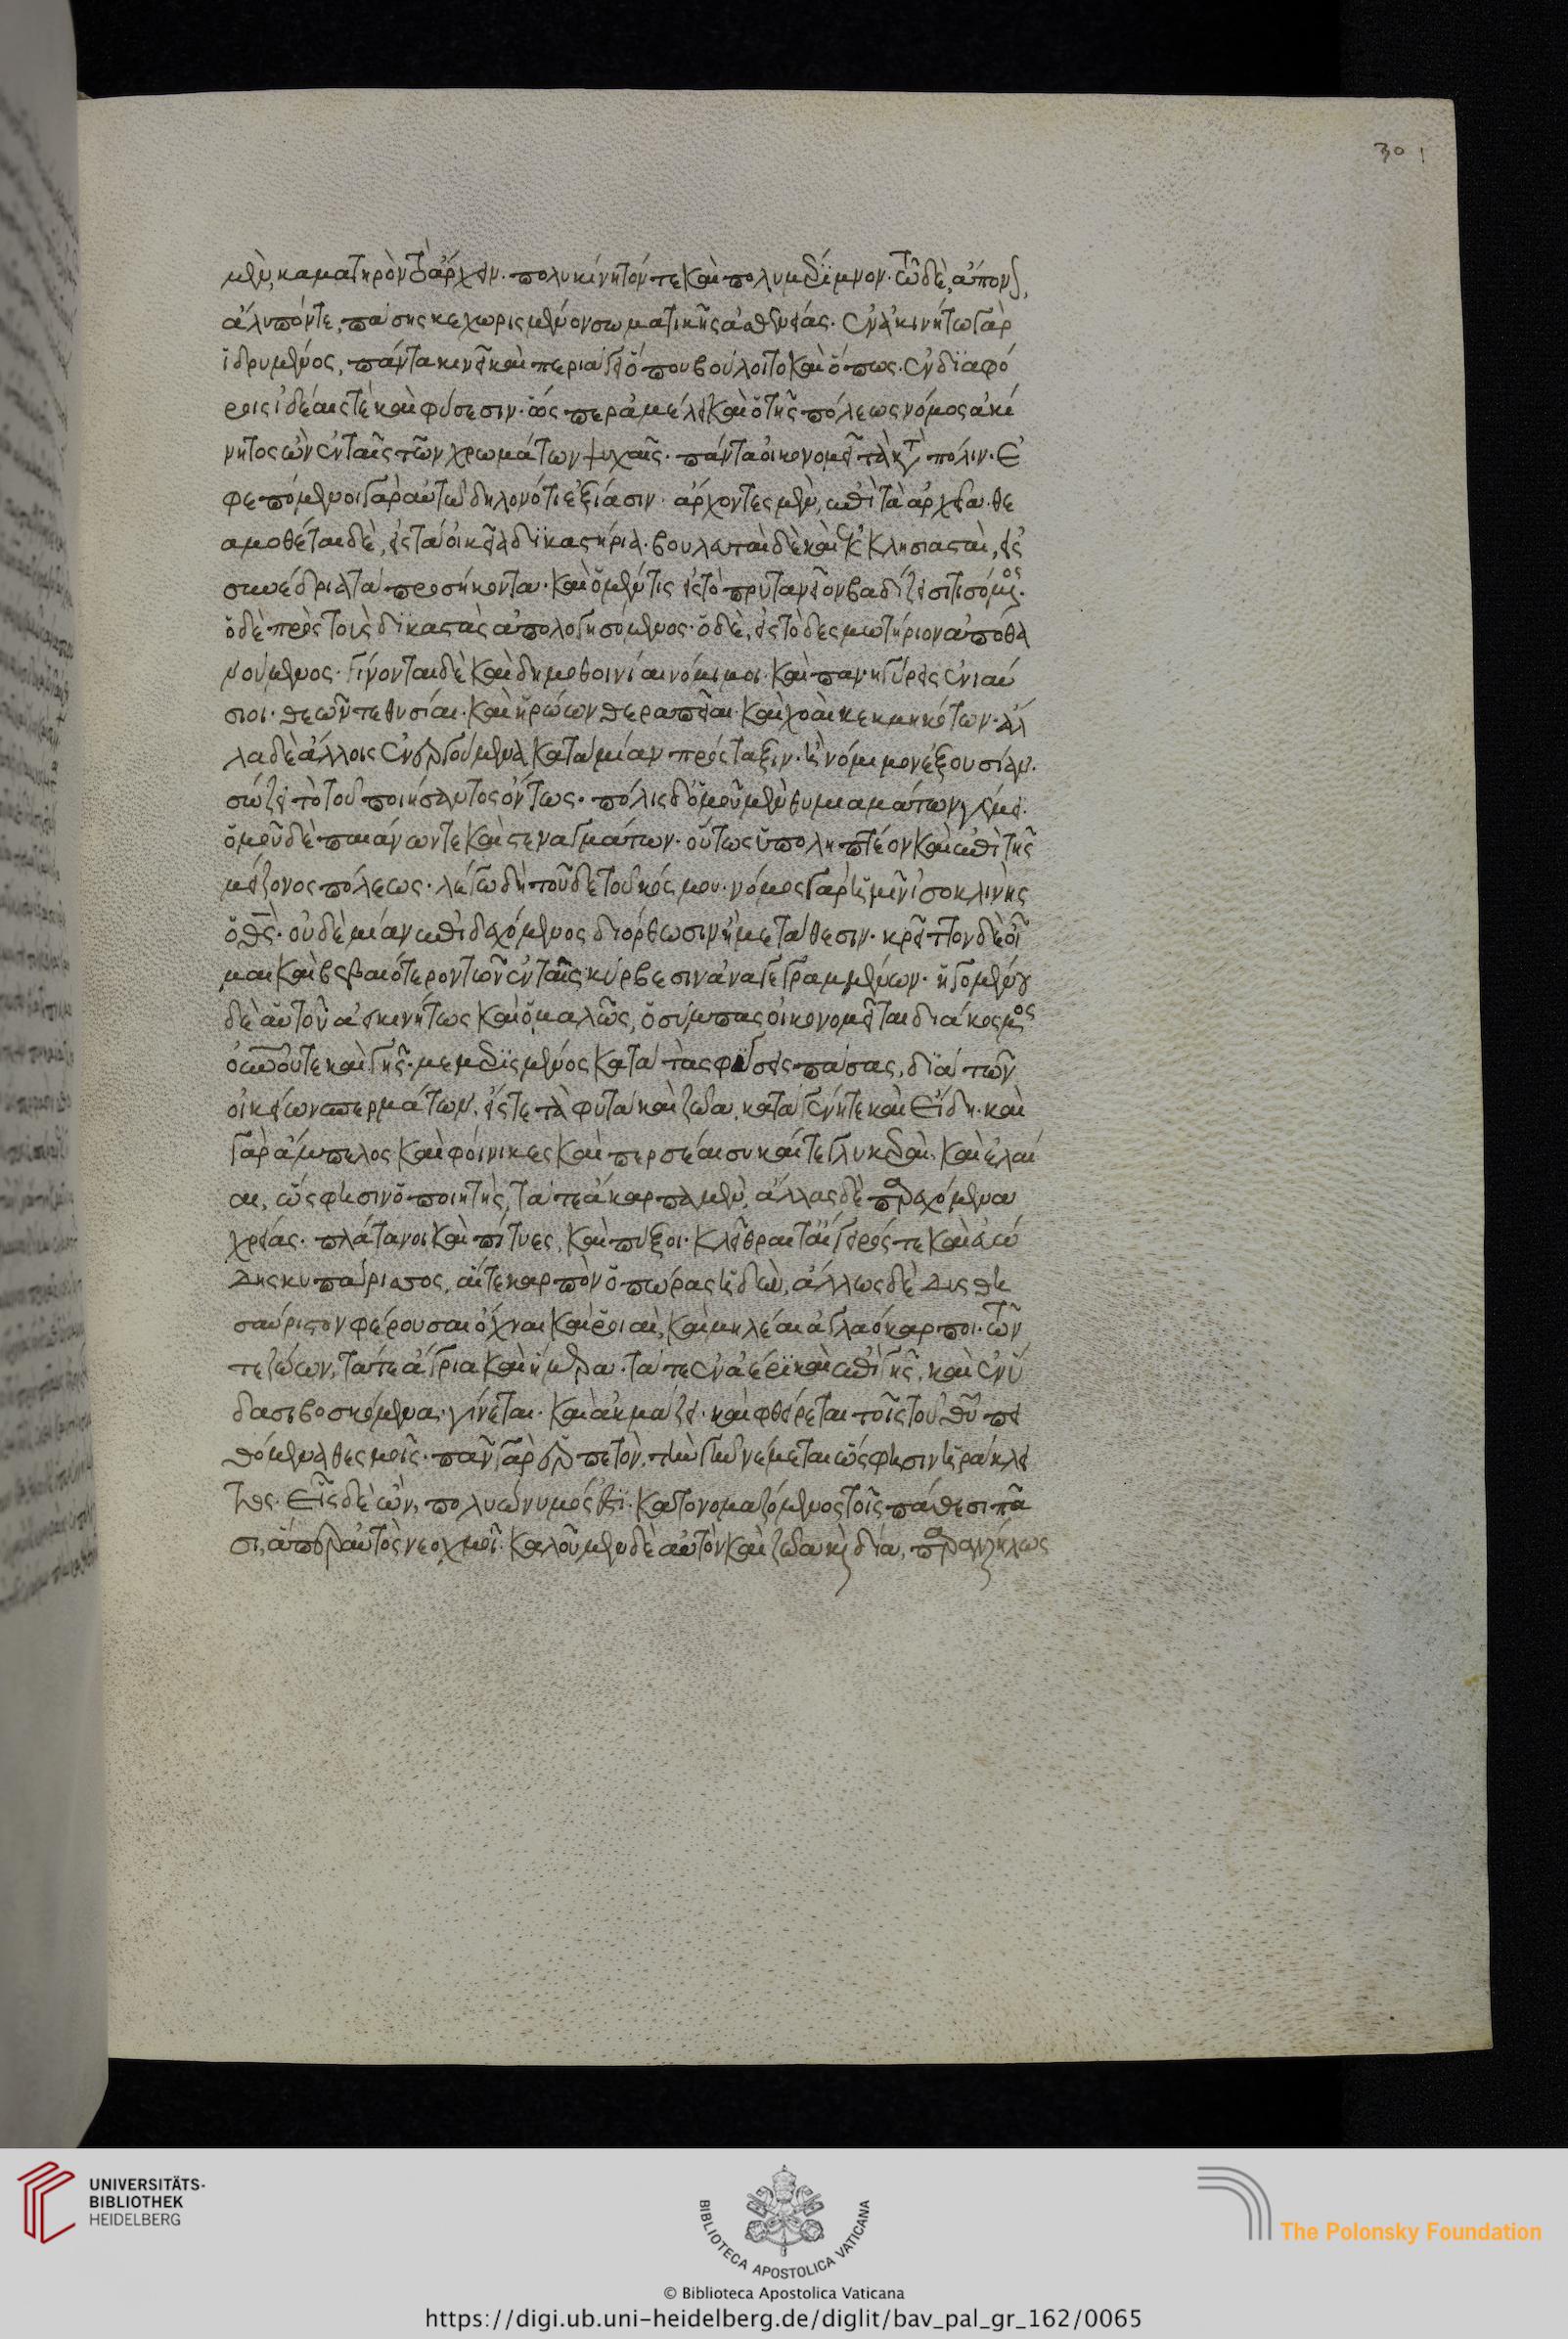 μὲν, καματηρὸν τὸ ἄρχειν. πολυκίνητόν τε καὶ πολυμέριμνον. τῶ δὲ, ἄπονον,
ἄλυπόν τε, πάσης κεχωρισμένον σωματικῆς ἀσθενείας. ἐν ἀκινήτω γὰρ
ἱδρυμένος, πάντα κινεῖ καὶ περιάγει ὅπου βούλοιτο καὶ ὅπως. ἐν διαφό
ροις ἰδέαις τὲ καὶ φύσεσιν. ὥς περ ἀμέλει καὶ ὁ τῆς πόλεως νόμος ἀκί
νητος ὢν ἐν ταῖς τῶν χρωμάτων ψυχαῖς. πάντα οἰκονομεῖ τὰ κατὰ πόλιν. Ἐ
φεπόμενοι γὰρ αὐτῶ δηλονότι ἐξιάσιν. ἄρχοντες μὲν, ἐπὶ τὰ ἀρχεῖα. θε
σμοθέται δὲ, εἰς τὰ οἰκεῖα δικαστήρια. βουλευταὶ δὲ καὶ ἐκκλησιασταὶ, εἰς
συνέδρια τὰ προσήκοντα. καὶ ὁ μέν τις εἰς τὸ πρυτανεῖον βαδίζει σιτισόμενος.
ὁ δὲ πρὸς τοὺς δικαστὰς ἀπολογησόμενος. ὁ δὲ, εἰς τὸ δεσμωτήριον ἀποθα
νούμενος. γίνονται δὲ καὶ δημοθοινίαι νόμιμοι. καὶ πανηγύρεις ἐνιαύ
σιοι. θεῶν τε θυσίαι. καὶ ἡρώων θεραπεῖαι. καὶ χοαὶ κεκμηκότων. ἄλ
λα δὲ ἄλλοις ἐνεργούμενα κατὰ μίαν πρόσταξιν. ἢ νόμιμον ἐξουσίαν.
σώζει τὸ τοῦ ποιήσαντος ὄντως. πόλις δ' ὁμοῦ μὲν θυμιαμάτων γέμει.
ὁμοῦ δὲ παιάνων τε καὶ στεναγμάτων. οὕτως ὑποληπτέον καὶ ἐπὶ τῆς
μείζονος πόλεως. λέγω δὴ τοῦδε τοῦ κόσμου. νόμος γὰρ ἡμῖν ἰσοκλινὴς
ὁ θεός. οὐδεμίαν ἐπιδεχόμενος διόρθωσιν ἢ μετάθεσιν. κρεῖττον δὲ οἶ
μαι καὶ βεβαιότερον τῶν ἐν ταῖς κύρβεσιν ἀναγεγραμμένων. ἡγουμένου
δὲ αὐτοῦ ἀεικινήτως καὶ ὁμαλῶς, ὁ σύμπας οἰκονομεῖται διάκοσμος
οὐρανοῦ τε καὶ γῆς. μεμερισμένος κατὰ τὰς φύσεις πάσας, διὰ τῶν
οἰκείων σπερμάτων. εἴς τε τὰ φυτὰ καὶ ζῶα, κατὰ γένη τε καὶ εἴδη. καὶ
γὰρ ἄμπελος καὶ φοίνικες καὶ περσέαι συκαί τε γλυκεραὶ. καὶ ἐλαῖ
αι, ὥς φησιν ὁ ποιητὴς, τά τε ἄκαρπα μὲν, ἄλλας δὲ παρεχόμενα
χρείας. πλάτανοι καὶ πίτυες, καὶ πύξοι. κλήθρα τ' αἴγειρός τε καὶ εὐώ
δης κυπάρισσος, αἵ τε καρπὸν ὀπώρας ἡδὺν, ἄλλως δὲ δυσθη
σαύριστον φέρουσαι ὄχναι καὶ ροιαὶ, καὶ μηλέαι ἀγλαόκαρποι. τῶν
τε ζώων, τά τε ἄγρια καὶ ἥμερα. τά τε ἐν ἀέρι καὶ ἐπὶ γῆς, καὶ ἐν ὕ
δασι βοσκόμενα. γίνεται. καὶ ἀκμάζει. καὶ φθείρεται τοῖς τοῦ θεοῦ πει
θόμενα θεσμοῖς. πᾶν γὰρ ἑρπετὸν, τὴν γῆν νέμεται ὥς φησιν ἡράκλει
τος. Εἷς δὲ ὢν, πολυώνυμός ἐστι. κατονομαζόμενος τοῖς πάθεσι πᾶ
σι, ἅπερ αὐτὸς νεοχμοῖ. καλοῦμεν δὲ αὐτὸν καὶ ζῶα καὶ δία, παραλλήλως